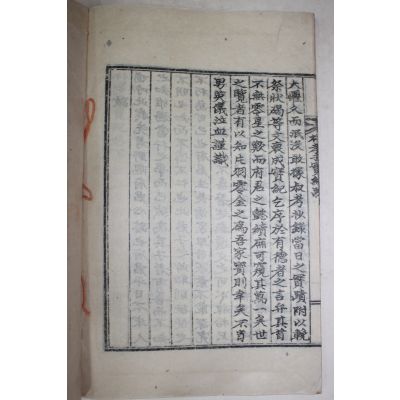 大懼久而泯沒敢據故考沙錄當日之實蹟附以輓
祭狀碣等文裒成實紀乞序於有德者之言弁其首
不無零星之歎而府君之懿績庶可窺其萬一矣世
之覽者有以知片羽零金之爲吾家寶則幸矣不肖
男英儀泣血謹識